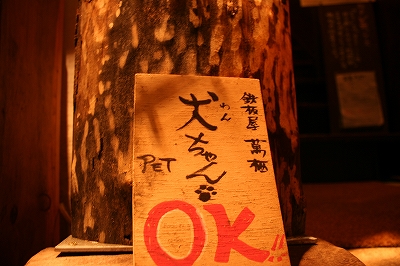 鉄板屋 萬極
犬ちゃん
わん
PET
OK!!